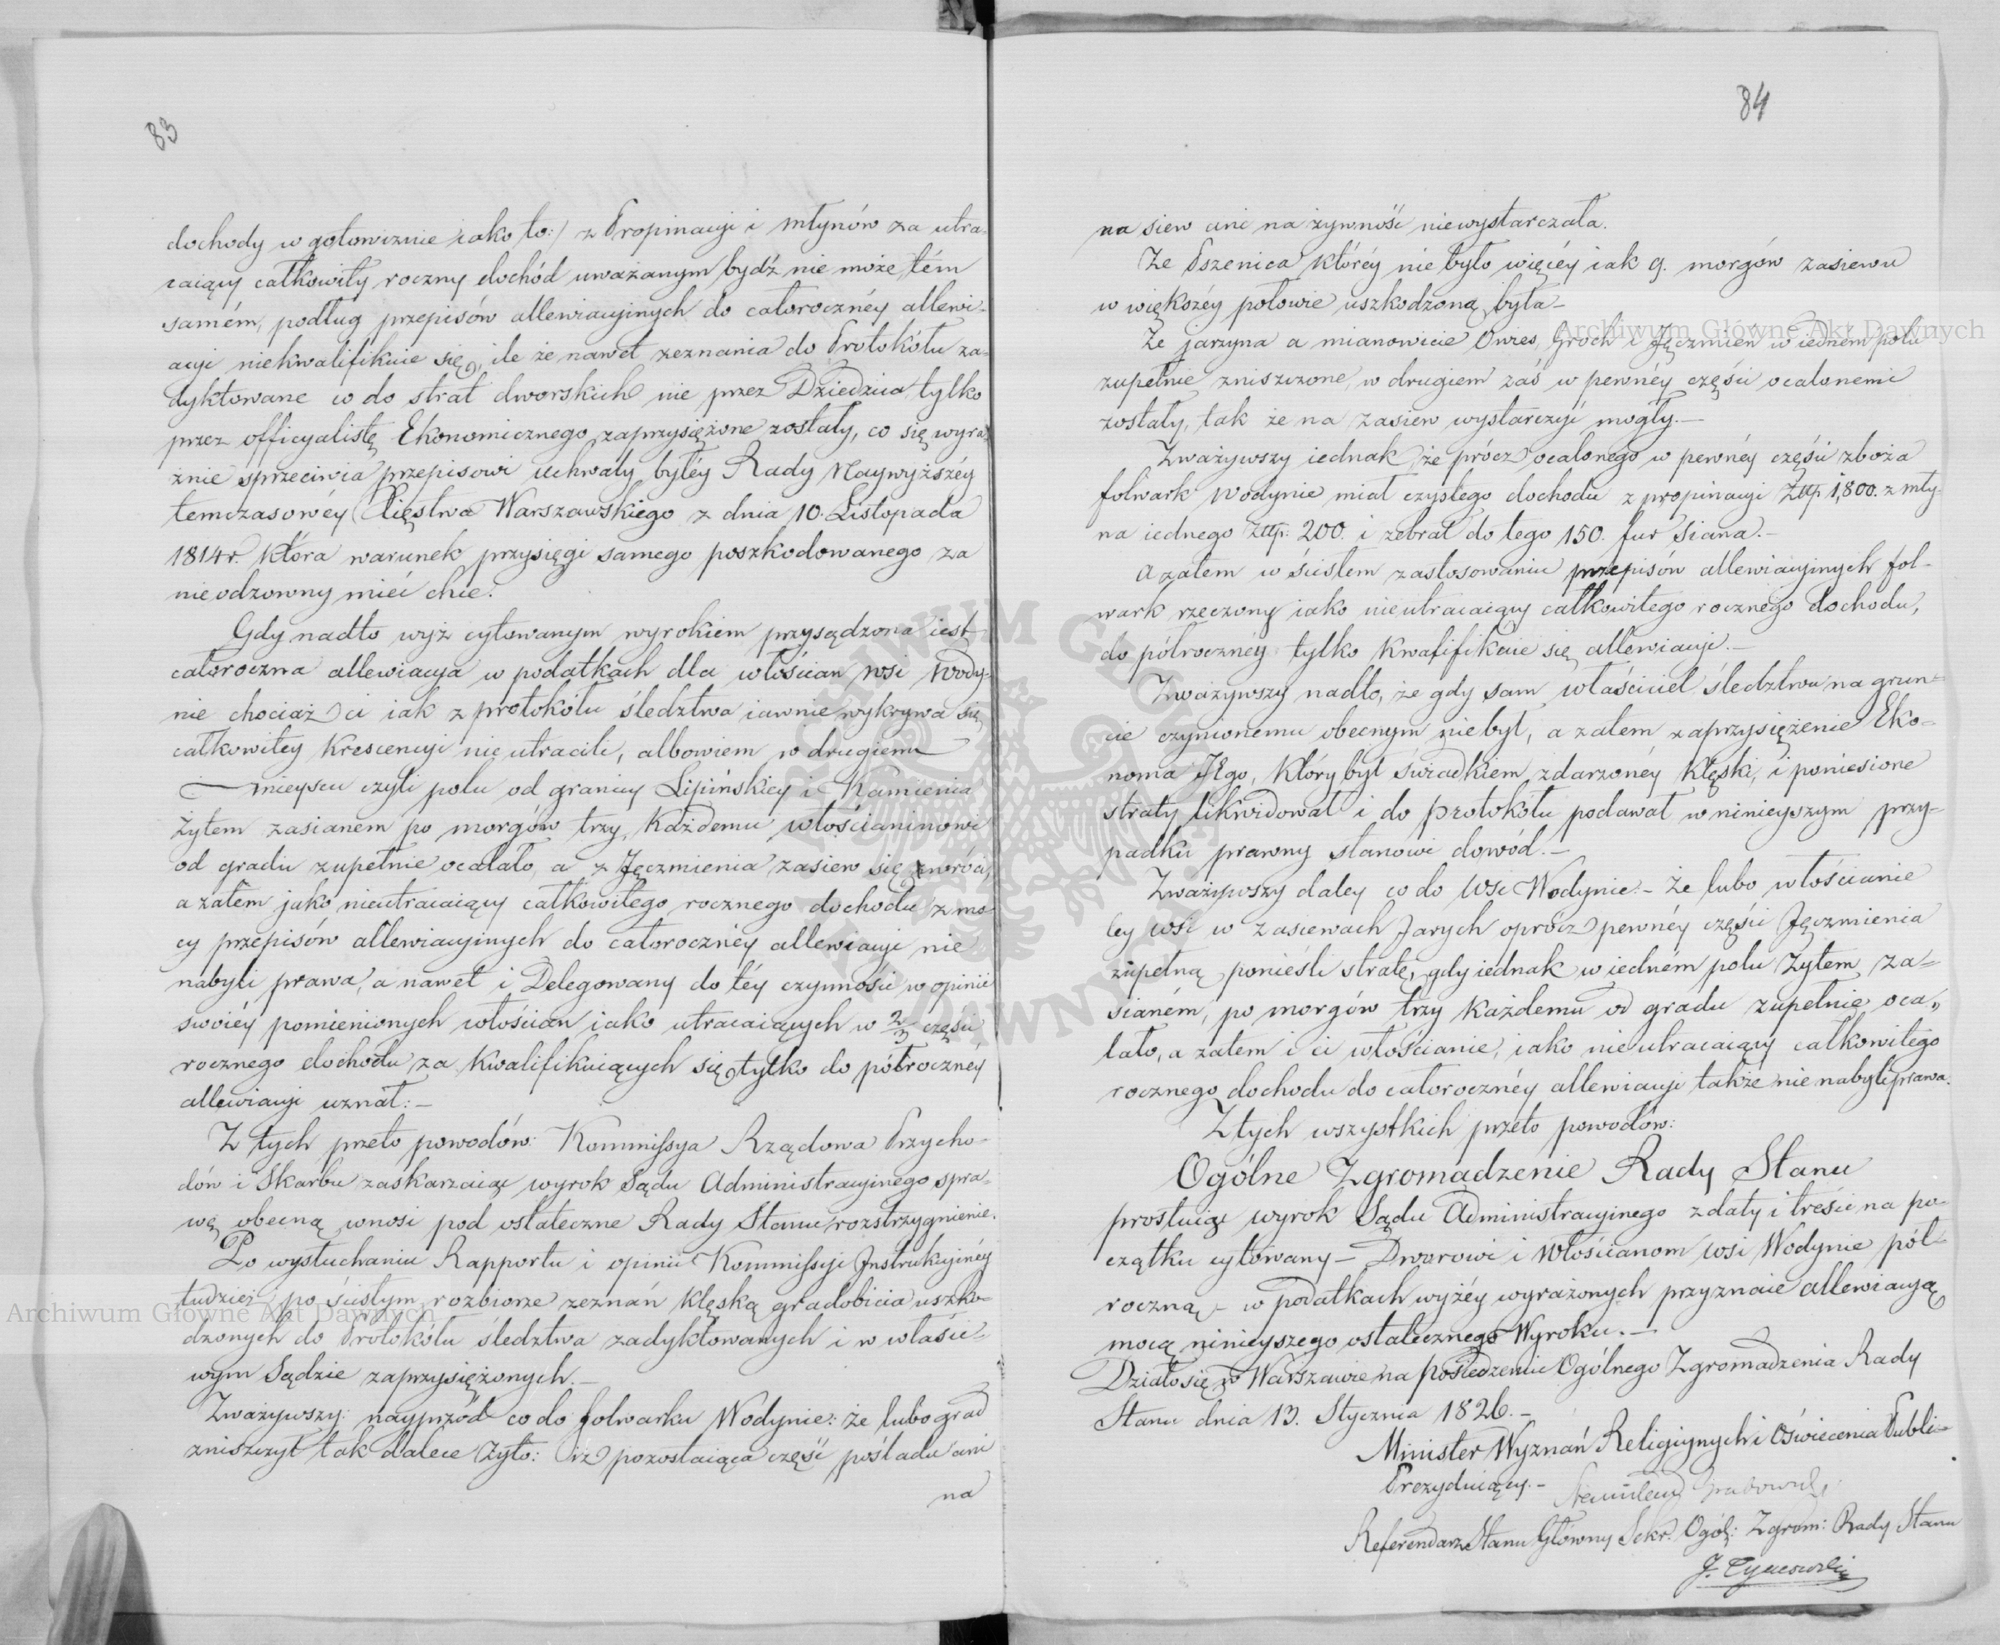 83
dochody w gotowiznie /: iako to :/ z Propinacyi i młynów za utra-
caiący całkowity roczny dochód uważanym bydź nie może tém
samém, podług przepisów allewiacyinych do całorocznéy allewi-
acyi niekwalifikuie się, ile że nawet zeznania do Protokółu za-
dyktowane co do strat dworskich nie przez Dziedzica tylko
przez officyalistę Ekonomicznego zaprzysiężone zostały, co się wyra-
źnie sprzeciwia przepisowi uchwały byłéy Rady Naywyższéy
temczasowéy Xięstwa Warszawskiego z dnia 10. Listopada
1814 r. która warunek przysięgi samego poszkodowanego za
nieodzowny mieć chce.
Gdy nadto wyż cytowanym wyrokiem przysądzona iest
całoroczna allewiacya w podatkach dla włościan wsi Wody-
nie chociaż ci iak z protokółu śledztwa iawnie wykrywa się
całkowitey krescencyi nie utracili, albowiem w drugiem
mieyscu czyli polu od granicy Lipińskiey i Kamienia
żytem zasianem po morgów trzy każdemu włościaninowi
od gradu zupełnie ocalało, a z Jęczmienia zasiew się zwrócił,
a zatém jako nieutracaiący całkowitego rocznego dochodu z mo-
cy przepisów allewiacyinych do całorocznéy allewiacyi nie
nabyli prawa, a nawet i Delegowany do téy czynności w opinii
swoiéy pomienionych włościan iako utracaiących w 2/3 części
rocznego dochodu za kwalifikuiących się tylko do półrocznéy
allewiacyi uznał: —
Z tych przeto powodów: Kommissya Rządowa Przycho-
dów i Skarbu zaskarzaiąc wyrok Sądu Administracyinego spra-
wę obecną wnosi pod ostateczne Rady Stanu rozstrzygnienie.
Po wysłuchaniu Rapportu i opinii Kommissyi Instrukcyinéy
tudzież po ścisłym rozbiorze zeznań klęską gradobicia uszko-
dzonych do Protokółu śledztwa zadyktowanych i w właści-
wym Sądzie zaprzysiężonych. —
Zważywszy: nayprzód co do folwarku Wodynie: że lubo grad
zniszczył tak dalece żyto: iż pozostaiąca część pośladu ani
na
84
na siew ani na żywność niewystarczała.
Że Pszenica któréy nie było więcéy iak 9. morgów zasiewu
w większéy połowie uszkodzoną była —
Że jarzyna a mianowicie Owies, Groch i Jęczmień w iednem polu
zupełnie zniszczone, w drugiem zaś w pewnéy części ocalonemi
zostały, tak że na zasiew wystarczyć mogły. —
Zważywszy iednak że prócz ocalonego w pewnéy części zboża
folwark Wodynie miał czystego dochodu z propinacyi Złtp. 1,800. z mły-
na iednego Złtp: 200. i zebrał do tego 150. fur Siana. —
A zatem w ścisłem zastosowaniu przepisów allewiacyinych fol-
wark rzeczony iako nieutracaiący całkowitego rocznego dochodu,
do półrocznéy tylko kwalifikuie się allewiacyi. —
Zważywszy nadto, że gdy sam właściciel śledztwu na grun-
cie czynionemu obecnym nie był, a zatem zaprzysiężenie Eko-
noma Jego, który był świadkiem zdarzonéy klęski, i poniesione
straty likwidował i do protokółu podawał w ninieyszym przy-
padku prawny stanowi dowód. —
Zważywszy daley co do Wsi Wodynie — że lubo włościanie
tey wsi w zasiewach Jarych oprócz pewnéy części Jęczmienia
zupełną ponieśli stratę, gdy iednak w iedném polu żytem za-
sianém, po morgów trzy każdemu od gradu zupełnie oca-
lało, a zatem i ci włościanie, iako nieutracaiący całkowitego
rocznego dochodu do całorocznéy allewiacyi także nie nabyli prawa.
Z tych wszystkich przeto powodów:
Ogólne Zgromadzenie Rady Stanu
prostuiąc wyrok Sądu Administracyinego z daty i treści na po-
czątku cytowany — Dworowi i Włościanom wsi Wodynie pół-
roczną — w podatkach wyżéy wyrażonych przyznaie allewiacyą
mocą ninieyszego ostatecznego Wyroku. —
Działo się w Warszawie na posiedzeniu Ogólnego Zgromadzenia Rady
Stanu dnia 13. Stycznia 1826. —
Minister Wyznań Religiynych i Oświecenia Publi-
Prezyduiący. — Stanisław Grabowski
Referendarz Stanu Główny Sekr. Ogól: Zgrom: Rady Stanu
J. Tymowski
Archiwum Główne Akt Dawnych
Archiwum Główne Akt Dawnych
ARCHIWUM GŁÓWNE AKT DAWNYCH